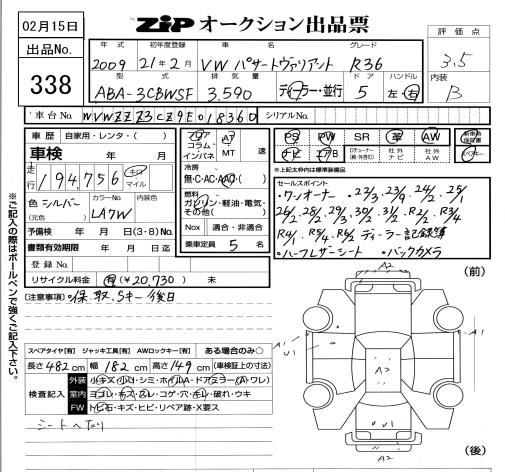 02月15日
ZIP オークション出品票
出品No.
338
評価点
3.5
内装
B
年式 初年度登録 車名 グレード
2009 21年2月 VW パサートヴァリアント R36
型式 排気量 ドア ハンドル
ABA-3CBWSF 3.590 ディーラー・並行 5 左・右
車台No. WVWZZZ3CZ9E018360 シリアルNo.
車歴 自家用・レンタ・( )
車検
走行 194,756 キロ マイル
色 シルバー カラーNo. LA7W 内装色
(元色)
予備検 年 月 日(3・8)No.
書類有効期限 年 月 日迄
登録No.
リサイクル料金 有(¥20,730) 未
フロア コラム インパネ AT MT 速
冷房
無・C・AC・AAC・( )
燃料
ガソリン・軽油・電気・
その他( )
Nox 適合・非適合
乗車定員 5 名
PS PW SR 革 AW
ナビ エアB Dチューナー 社外ナビ 社外AW
新車時保証書
※上記太枠内は標準装備品
セールスポイント
・ワンオーナー ・22/3 23/9 24/2 25/1
26/2 28/2 29/3 30/2 31/2 R2/2 R3/4
R4/1 R5/4 R6/2 ディーラー記録簿
・ハーフレザーシート ・バックカメラ
[注意事項]・保、取、Sキー後日
※ご記入の際はボールペンで強くご記入下さい。
スペアタイヤ[有] ジャッキ工具[有] AWロックキー[有] ある場合のみ○
長さ 482cm 幅 182cm 高さ 149cm (車検証上の寸法)
検査記入
外装 小キズ・小凹・シミ・ホイルA・ドアミラー(A・ワレ)
室内 ヨゴレ・キズ・スレ・コゲ・穴・モレ・破れ・ウキ
FW トビ石・キズ・ヒビ・リペア跡・X要ス
シートへたり
(前)
A2
A1
A1
U1
U1
A2
A2
(後)